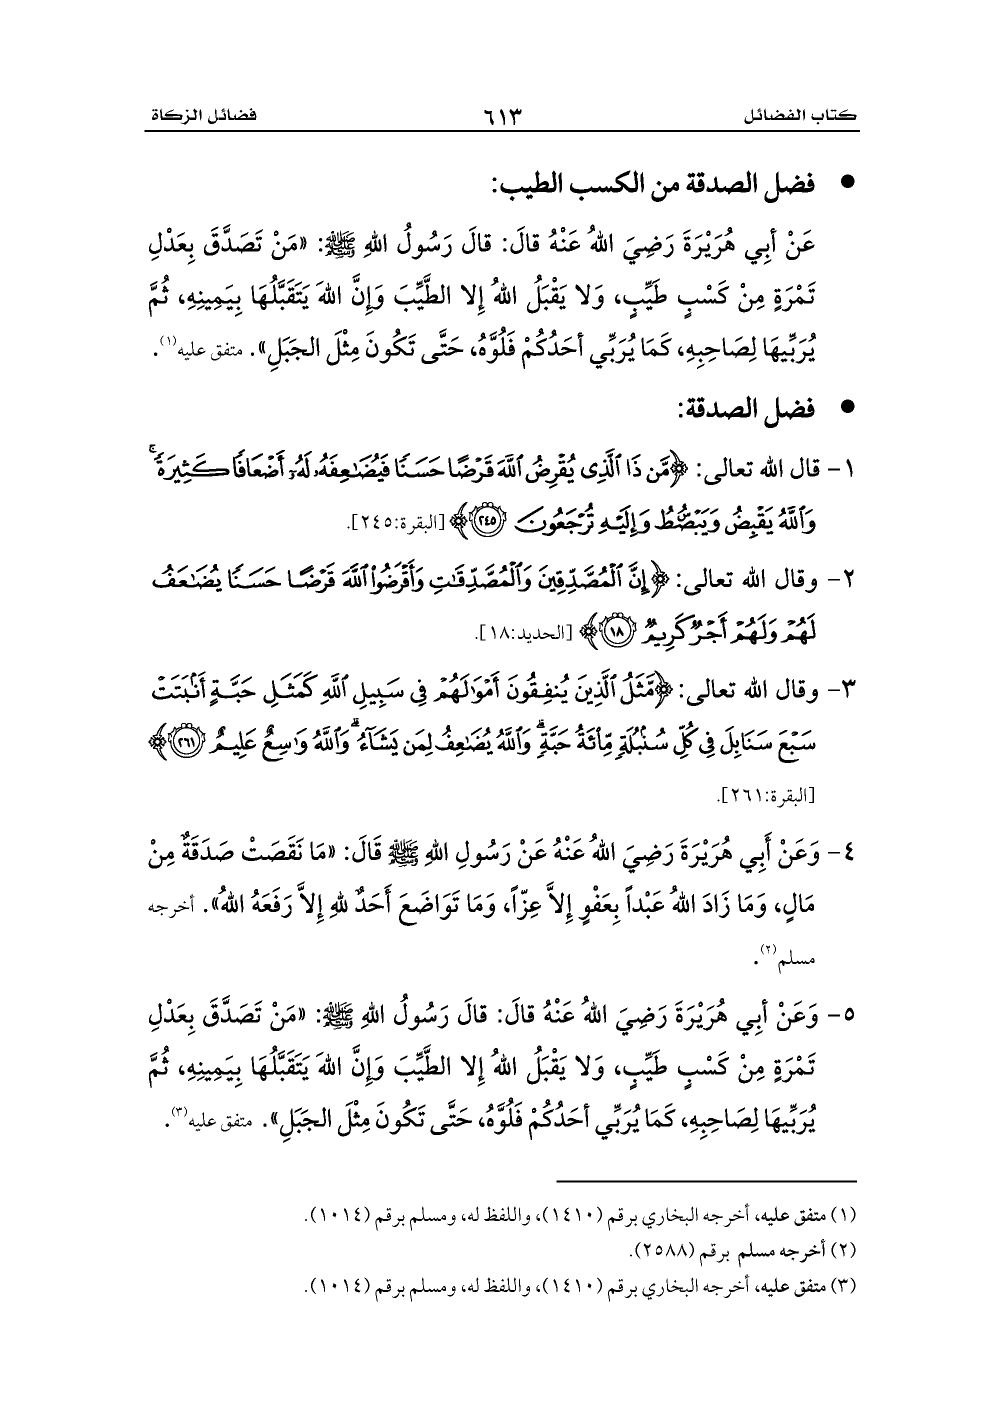 كتاب الفضائل ٦١٣ فضائل الزكاة
• فضل الصدقة من الكسب الطيب:
عَنْ أبِي هُرَيْرَةَ رَضِيَ اللهُ عَنْهُ قالَ: قالَ رَسُولُ اللهِ ﷺ: «مَنْ تَصَدَّقَ بِعَدْلِ
تَمْرَةٍ مِنْ كَسْبٍ طَيِّبٍ، وَلا يَقْبَلُ اللهُ إلا الطَّيِّبَ وَإنَّ اللهَ يَتَقَبَّلُهَا بِيَمِينِهِ، ثُمَّ
يُرَبِّيهَا لِصَاحِبِهِ، كَمَا يُرَبِّي أحَدُكُمْ فَلُوَّهُ، حَتَّى تَكُونَ مِثْلَ الجَبَلِ». متفق عليه(١).
• فضل الصدقة:
١- قال الله تعالى: ﴿مَّن ذَا ٱلَّذِى يُقْرِضُ ٱللَّهَ قَرْضًا حَسَنًا فَيُضَٰعِفَهُۥ لَهُۥٓ أَضْعَافًا كَثِيرَةً ۚ
وَٱللَّهُ يَقْبِضُ وَيَبْصُۜطُ وَإِلَيْهِ تُرْجَعُونَ ٢٤٥﴾ [البقرة:٢٤٥].
٢- وقال الله تعالى: ﴿إِنَّ ٱلْمُصَّدِّقِينَ وَٱلْمُصَّدِّقَٰتِ وَأَقْرَضُوا۟ ٱللَّهَ قَرْضًا حَسَنًا يُضَٰعَفُ
لَهُمْ وَلَهُمْ أَجْرٌ كَرِيمٌ ١٨﴾ [الحديد:١٨].
٣- وقال الله تعالى: ﴿مَّثَلُ ٱلَّذِينَ يُنفِقُونَ أَمْوَٰلَهُمْ فِى سَبِيلِ ٱللَّهِ كَمَثَلِ حَبَّةٍ أَنۢبَتَتْ
سَبْعَ سَنَابِلَ فِى كُلِّ سُنۢبُلَةٍ مِّا۟ئَةُ حَبَّةٍ ۗ وَٱللَّهُ يُضَٰعِفُ لِمَن يَشَآءُ ۗ وَٱللَّهُ وَٰسِعٌ عَلِيمٌ ٢٦١﴾
[البقرة:٢٦١].
٤- وَعَنْ أَبِي هُرَيْرَةَ رَضِيَ اللهُ عَنْهُ عَنْ رَسُولِ اللهِ ﷺ قَالَ: «مَا نَقَصَتْ صَدَقَةٌ مِنْ
مَالٍ، وَمَا زَادَ اللهُ عَبْداً بِعَفْوٍ إِلاَّ عِزّاً، وَمَا تَوَاضَعَ أَحَدٌ للهِ إِلاَّ رَفَعَهُ اللهُ». أخرجه
مسلم(٢).
٥- وَعَنْ أبِي هُرَيْرَةَ رَضِيَ اللهُ عَنْهُ قالَ: قالَ رَسُولُ اللهِ ﷺ: «مَنْ تَصَدَّقَ بِعَدْلِ
تَمْرَةٍ مِنْ كَسْبٍ طَيِّبٍ، وَلا يَقْبَلُ اللهُ إلا الطَّيِّبَ وَإنَّ اللهَ يَتَقَبَّلُهَا بِيَمِينِهِ، ثُمَّ
يُرَبِّيهَا لِصَاحِبِهِ، كَمَا يُرَبِّي أحَدُكُمْ فَلُوَّهُ، حَتَّى تَكُونَ مِثْلَ الجَبَلِ». متفق عليه(٣).
(١) متفق عليه، أخرجه البخاري برقم (١٤١٠)، واللفظ له، ومسلم برقم (١٠١٤).
(٢) أخرجه مسلم برقم (٢٥٨٨).
(٣) متفق عليه، أخرجه البخاري برقم (١٤١٠)، واللفظ له، ومسلم برقم (١٠١٤).